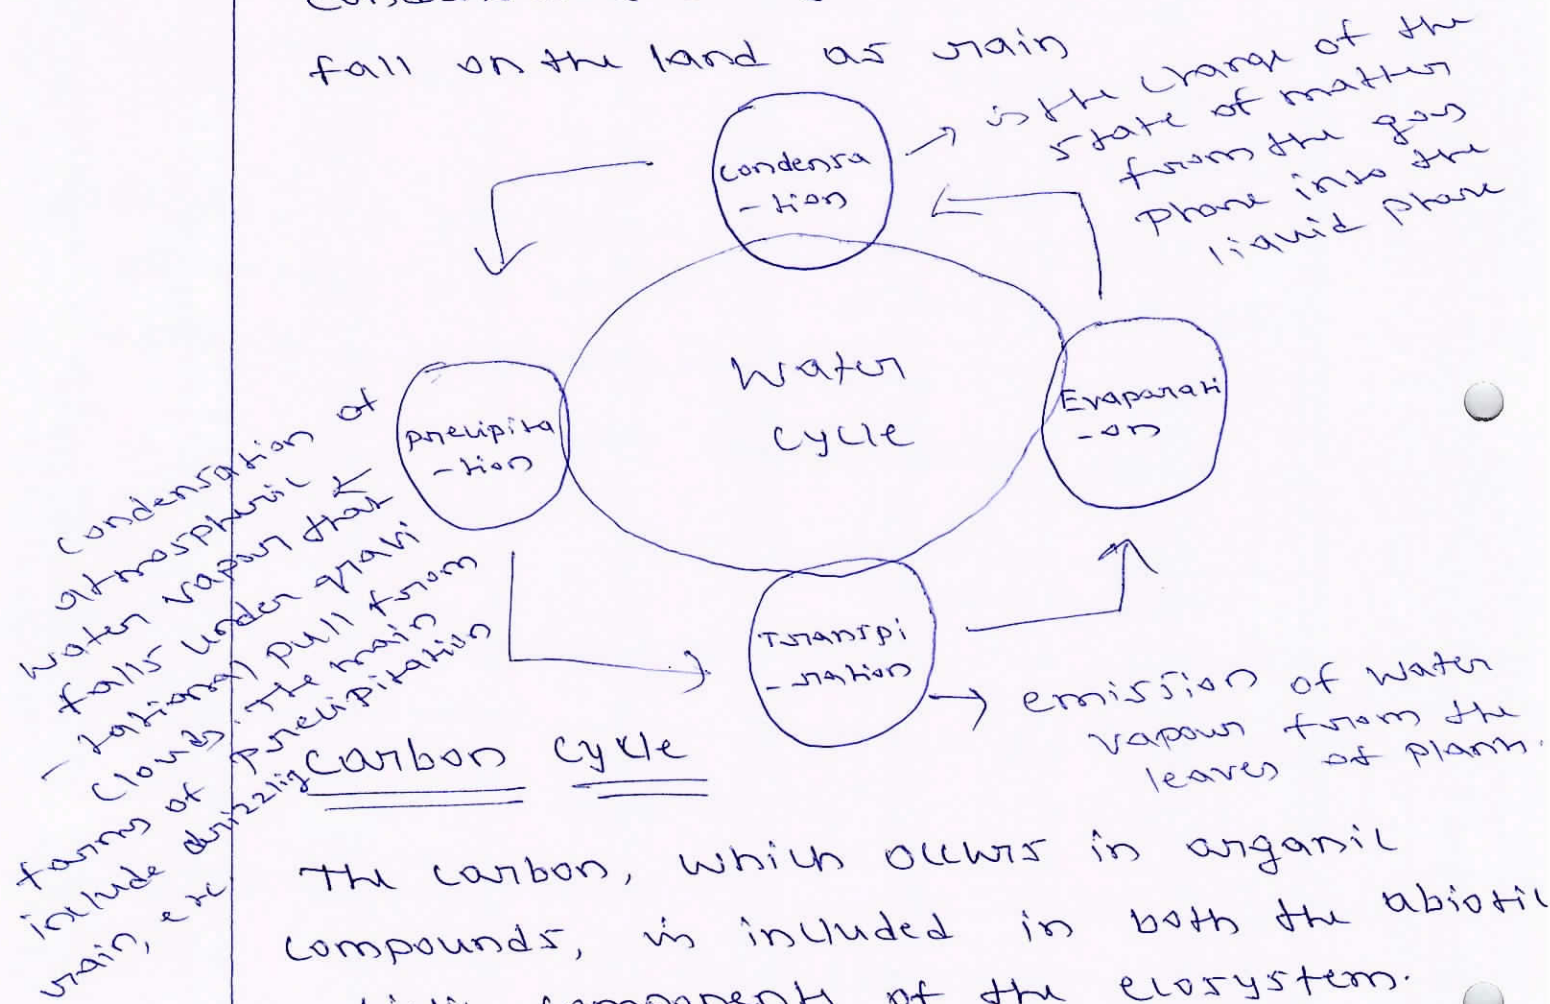 fall on the land as rain
condensa
-tion
is the change of the
state of matter
from the gas
phase into the
liquid phase
Water
cycle
Evaporati
-on
precipita
-tion
condensation of
atmospheric
water vapour that
falls under gravi
-tational pull from
clouds. The main
forms of precipitation
include drizzling
rain, etc
Transpi
-ration
emission of water
vapour from the
leaves of plants.
Carbon Cycle
The carbon, which occurs in organic
compounds, is included in both the abiotic
components of the ecosystem.